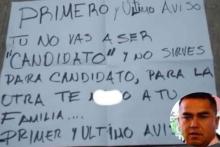 PRIMERO y ULTIMO AVISO
TU NO VAS A SER
"CANDIDATO" y NO SIRVES
PARA CANDIDATO, PARA LA
OTRA TE M O A TU
FAMILIA...
PRIMER y ULTIMO AVISO